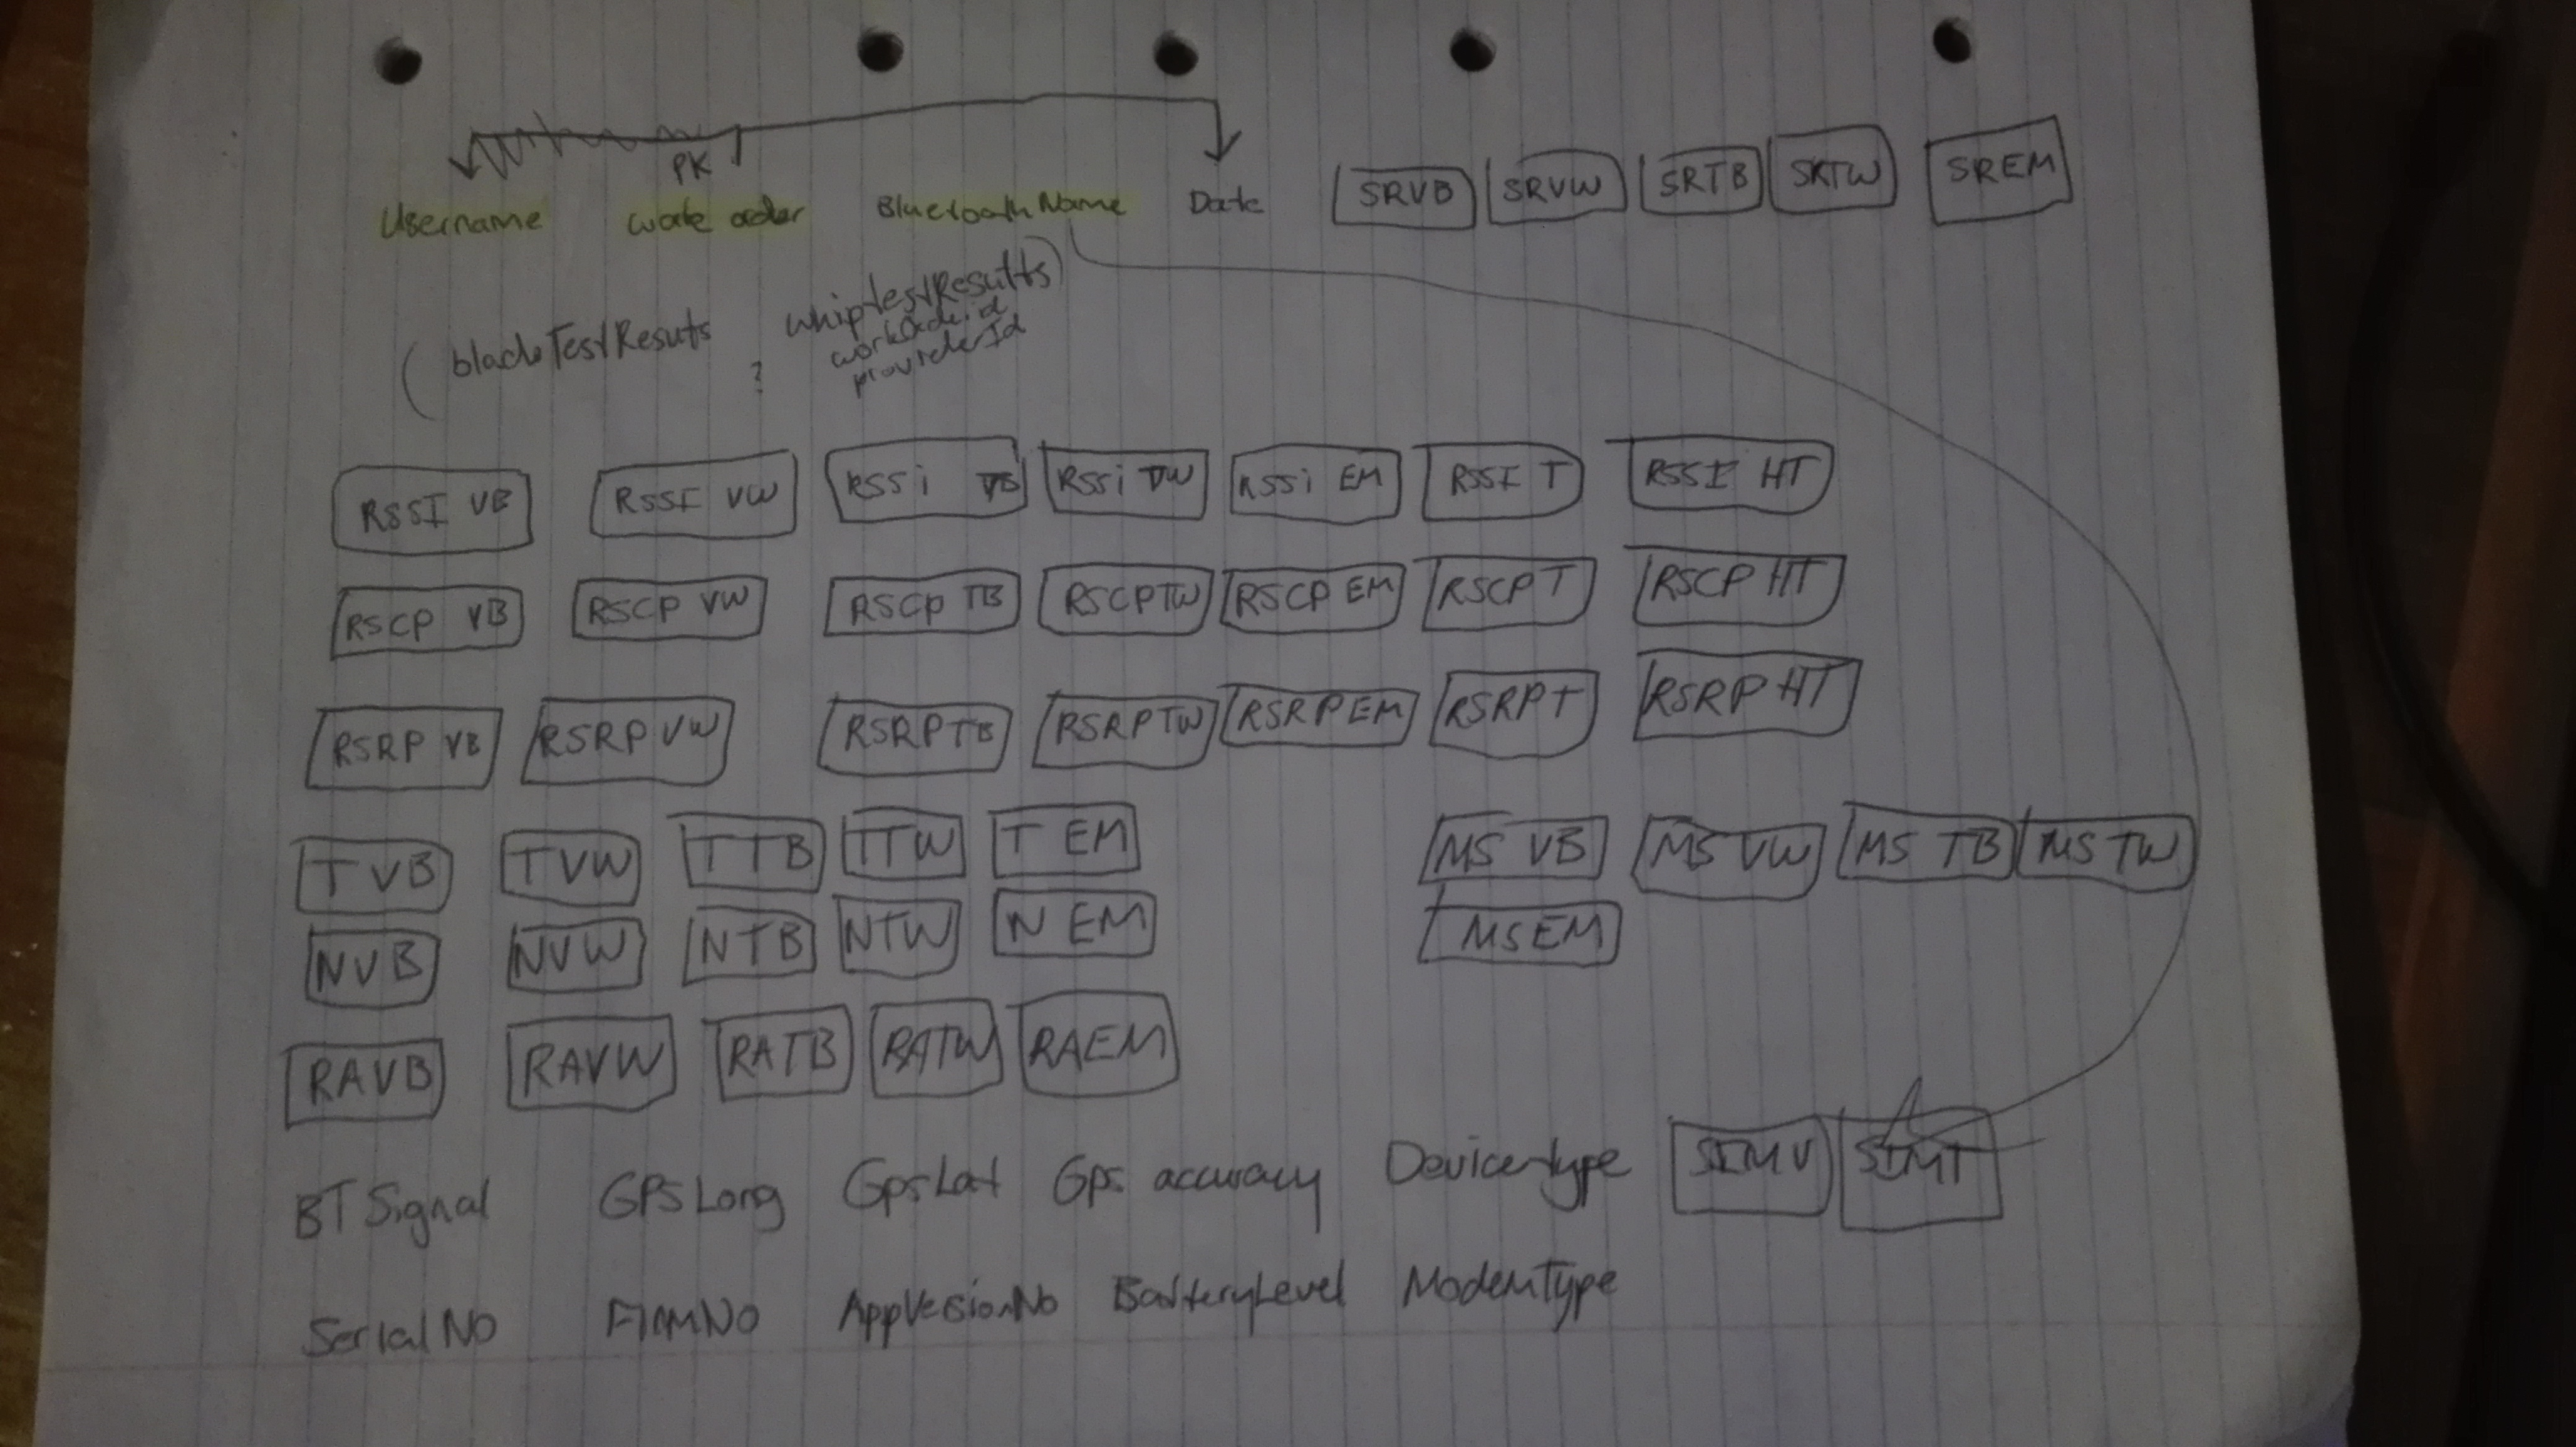 PK
Username work order Bluetooth Name Date SRVB SRVW SRTB SRTW SREM
(bladeTestResuts ? whiptestResults)
workOrderid
providerId
RSSI VB RSSI VW RSSi TB RSSi TW RSSi EM RSSI T RSSI HT
RSCP VB RSCP VW RSCP TB RSCPTW RSCP EM RSCPT RSCP HT
RSRP VB RSRP VW RSRPTB RSRPTW RSRPEM RSRPT RSRP HT
TVB TVW TTB TTW T EM MS VB MS VW MS TB MS TW
NVB NVW NTB NTW N EM MSEM
RAVB RAVW RATB RATW RAEM
BT Signal GPSLong GpsLat Gps accuracy Devicetype SIMV SIMT
SerialNo FirmNo AppVersionNo BatteryLevel ModemType